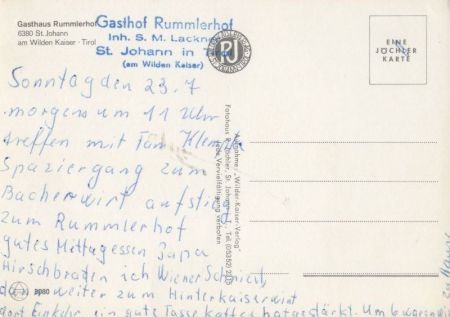 Gasthaus Rummlerhof
6380 St. Johann
am Wilden Kaiser · Tirol
Gasthof Rummlerhof
Inh. S. M. Lackner
St. Johann in Tirol
(am Wilden Kaiser)
PJ
EINE
JÖCHLER
KARTE
Sonntag den 23.7
morgens um 11 Uhr
treffen mit Fam
Spaziergang zum
Bacherwirt aufstieg
zum Rummlerhof
gutes Mittagessen Papa
Hirschbraten ich Wiener
dann weiter zum Hinterkaiserwirt
dort Einkehr ein gute Tasse Kaffee hat gestärkt. Um 6 waren wir
zu Hause
Aufnahme: „Wilden-Kaiser-Verlag"
Fotohaus R. Jöchler, St. Johann, Tel. (05352)
Jede Vervielfältigung verboten